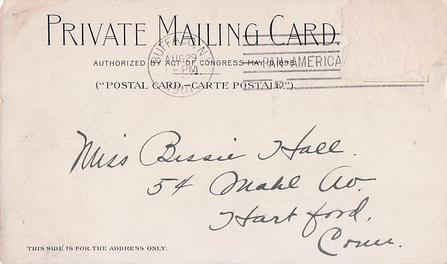 PRIVATE MAILING CARD.
AUTHORIZED BY ACT OF CONGRESS MAY 19, 1898.
("POSTAL CARD—CARTE POSTALE".)
BUFFALO, N.
AUG 29
PM
PAN-AMERICA
Miss Bessie Hall.
54 Mahl Av.
Hartford,
Conn.
THIS SIDE IS FOR THE ADDRESS ONLY.